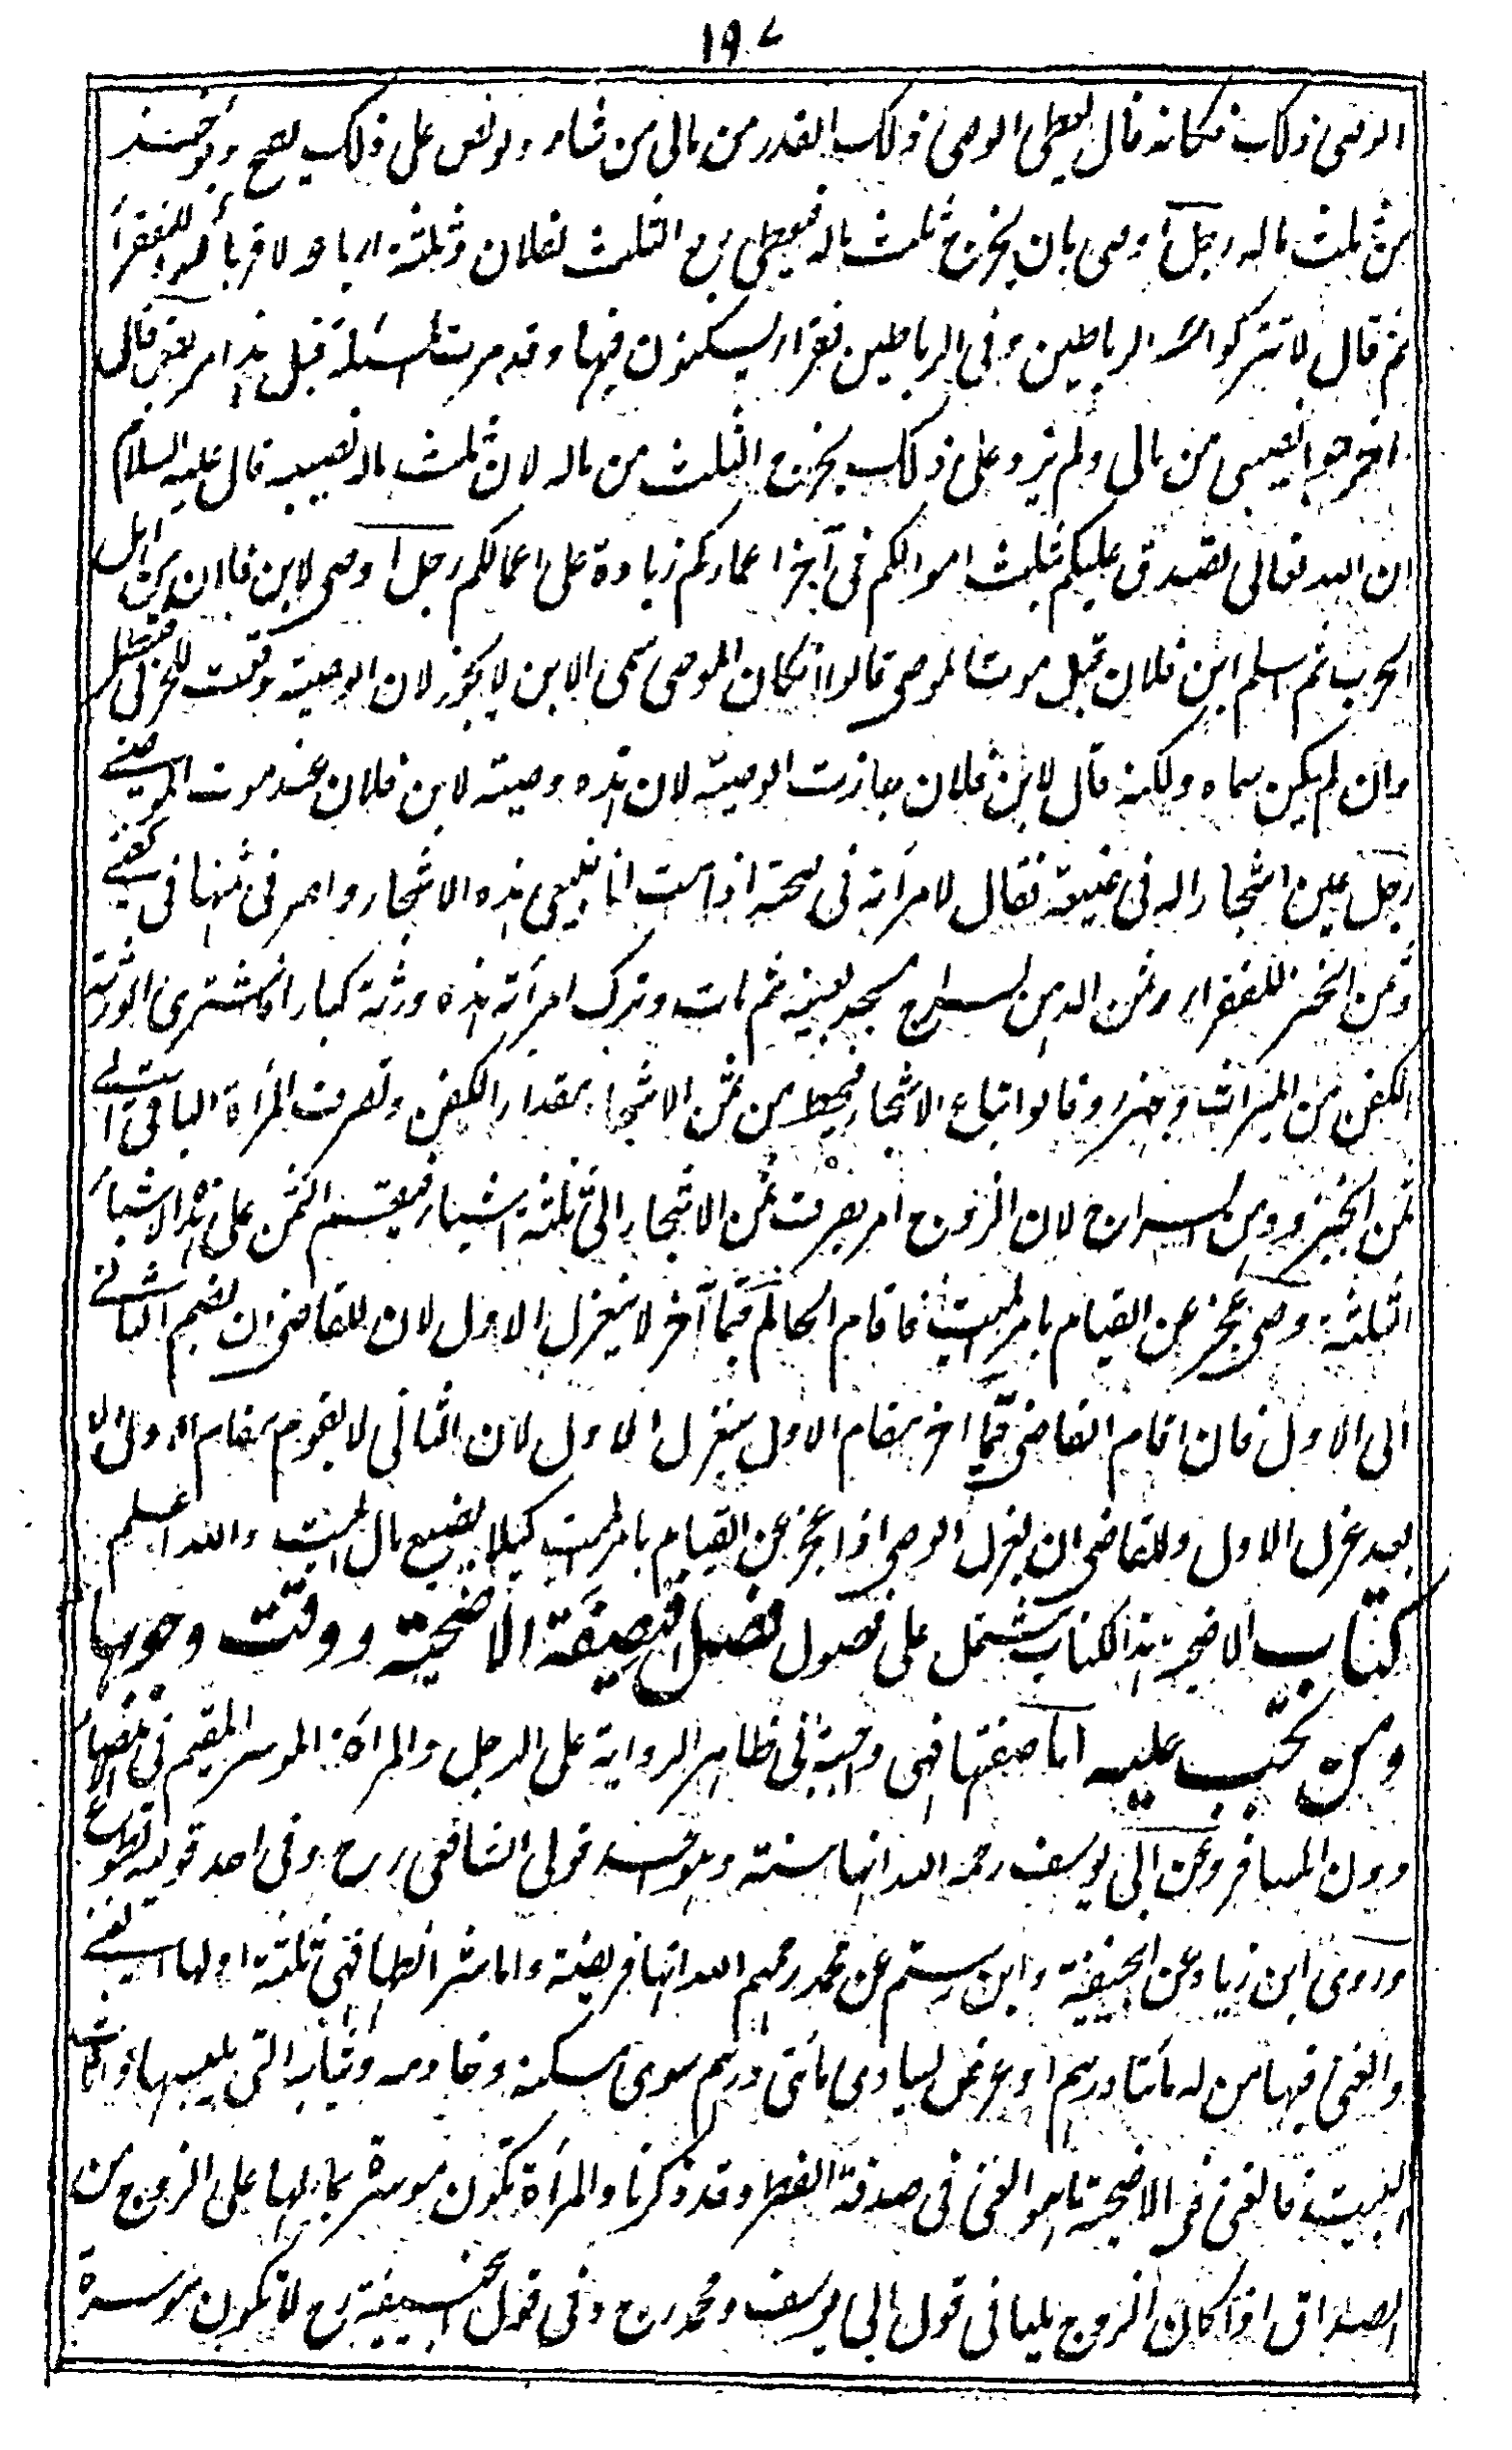 ١٩٧
الوصي ذلك فكانه قال يعطي الوصي ذلك القدر من مالي من شاء ولو نص على ذلك يصح ويؤخذ
من ثلث ماله رجل اوصى بان يخرج ثلث ماله فيعطى ربع الثلث لفلان وثلثة ارباعه لاقربائه وللفقراء
ثم قال لا تتركوا الرباطيين وفي الرباطين فقراء يسكنون فيها وقد مرت المسئلة قبل هذا مريض قال
اخرجوا نصيبي من مالي ولم يزد على ذلك يخرج الثلث من ماله لان ثلث ماله نصيبه قال عليه السلام
ان الله تعالى تصدق عليكم بثلث اموالكم في آخر اعماركم زيادة على اعمالكم رجل اوصى لابن فلان من اهل
الحرب ثم اسلم ابن فلان قبل موت الموصي قالوا انكان الموصي سمى الابن لا يجوز لان الوصية وقعت للحربي فتبطل
وان لم يكن سماه ولكنه قال لابن فلان جازت الوصية لان هذه وصية لابن فلان عند موت الموصي
رجل عين اشجارا له في ضيعة فقال لامرأته في صحته اذا مت انا فبيعي هذه الاشجار واصرفي ثمنها في كفني
وثمن الخبز للفقراء وثمن الدهن لسراج مسجد بعينه ثم مات وترك امرأته هذه ورثة كبارا فاشترى الورثة
الكفن من الميراث وجهزوه قالوا تباع الاشجار فيحط من ثمن الاشجار بمقدار الكفن وتصرف المرأة الباقي الى
ثمن الخبز ودهن السراج لان الزوج امر بصرف ثمن الاشجار الى ثلثة اشياء فيقسم الثمن على هذه الاشياء
الثلثة وصي عجز عن القيام بامر الميت فاقام الحاكم قيما آخر لا ينعزل الاول لان للقاضي ان يضم الثاني
الى الاول فان اقام القاضي قيما اخر بمقام الاول ينعزل الاول لان الثاني لا يقوم بمقام الاول الا
بعد عزل الاول وللقاضي ان يعزل الوصي اذا عجز عن القيام بامر الميت كيلا يضيع مال الميت والله اعلم
كتاب الاضحية هذا الكتاب يشتمل على فصول فصل في صفة الاضحية ووقت وجوبها
ومن تجب عليه اما صفتها فهي واجبة في ظاهر الرواية على الرجل والمرأة الموسر المقيم في الامصار
دون المسافر وعن ابي يوسف رحمه الله انها سنة وهو احد قولي الشافعي رح وفي احد قوليه تطوع
وروى ابن زياد عن ابي حنيفة وابن رستم عن محمد رحمهم الله انها فريضة واما شرائطها فهي ثلثة اولها الغنى
والغني فيها من له مائتا درهم او عرض يساوي مائتي درهم سوى مسكنه وخادمه وثيابه التي يلبسها واثاث
البيت فالغني في الاضحية ما هو الغني في صدقة الفطر وقد ذكرنا والمرأة تكون موسرة بما لها على الزوج من
الصداق اذا كان الزوج مليا في قول ابي يوسف ومحمد رح وفي قول ابي حنيفة رح لا تكون موسرة